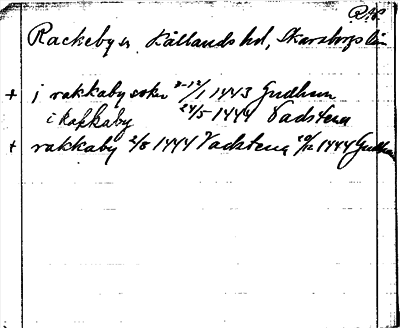 Rackeby sn Kållands hd, Skaraborgs län
+ j rakkaby sokn 1/1 1443 Gudhem
i Rakkaby 24/5 1444 Vadstena
+ rakkaby 2/8 1444 Vadstena 20/12 1444 Gudhem